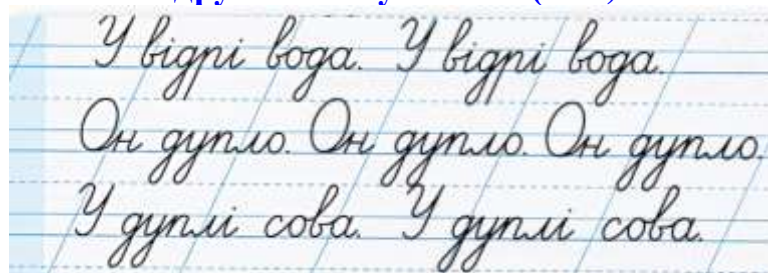 У відрі вода. У відрі вода.
Он дупло. Он дупло. Он дупло.
У дуплі сова. У дуплі сова.